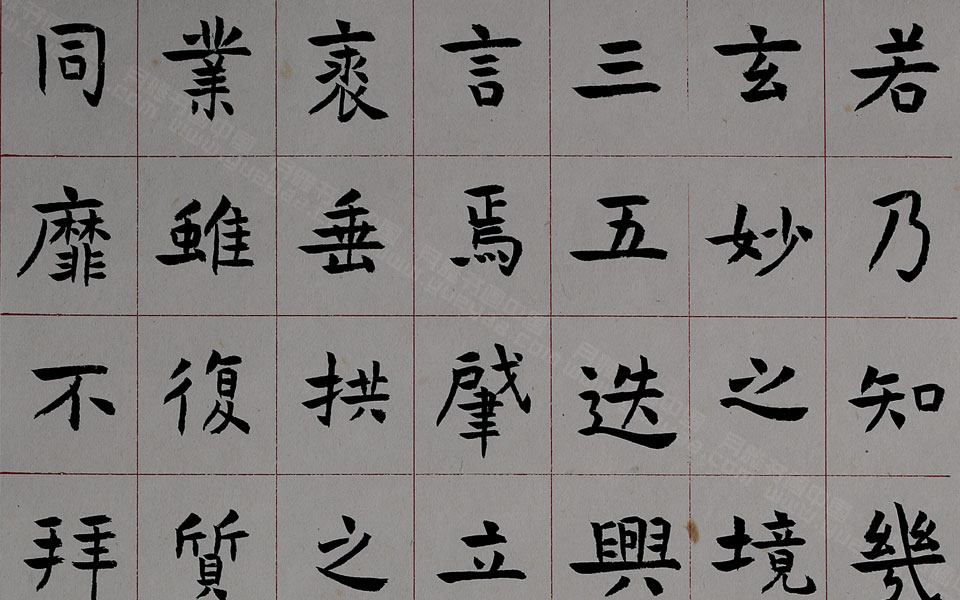 若乃知幾
玄妙之境
三五迭興
言焉肇立
垂拱之
業雖復質
同靡不拜